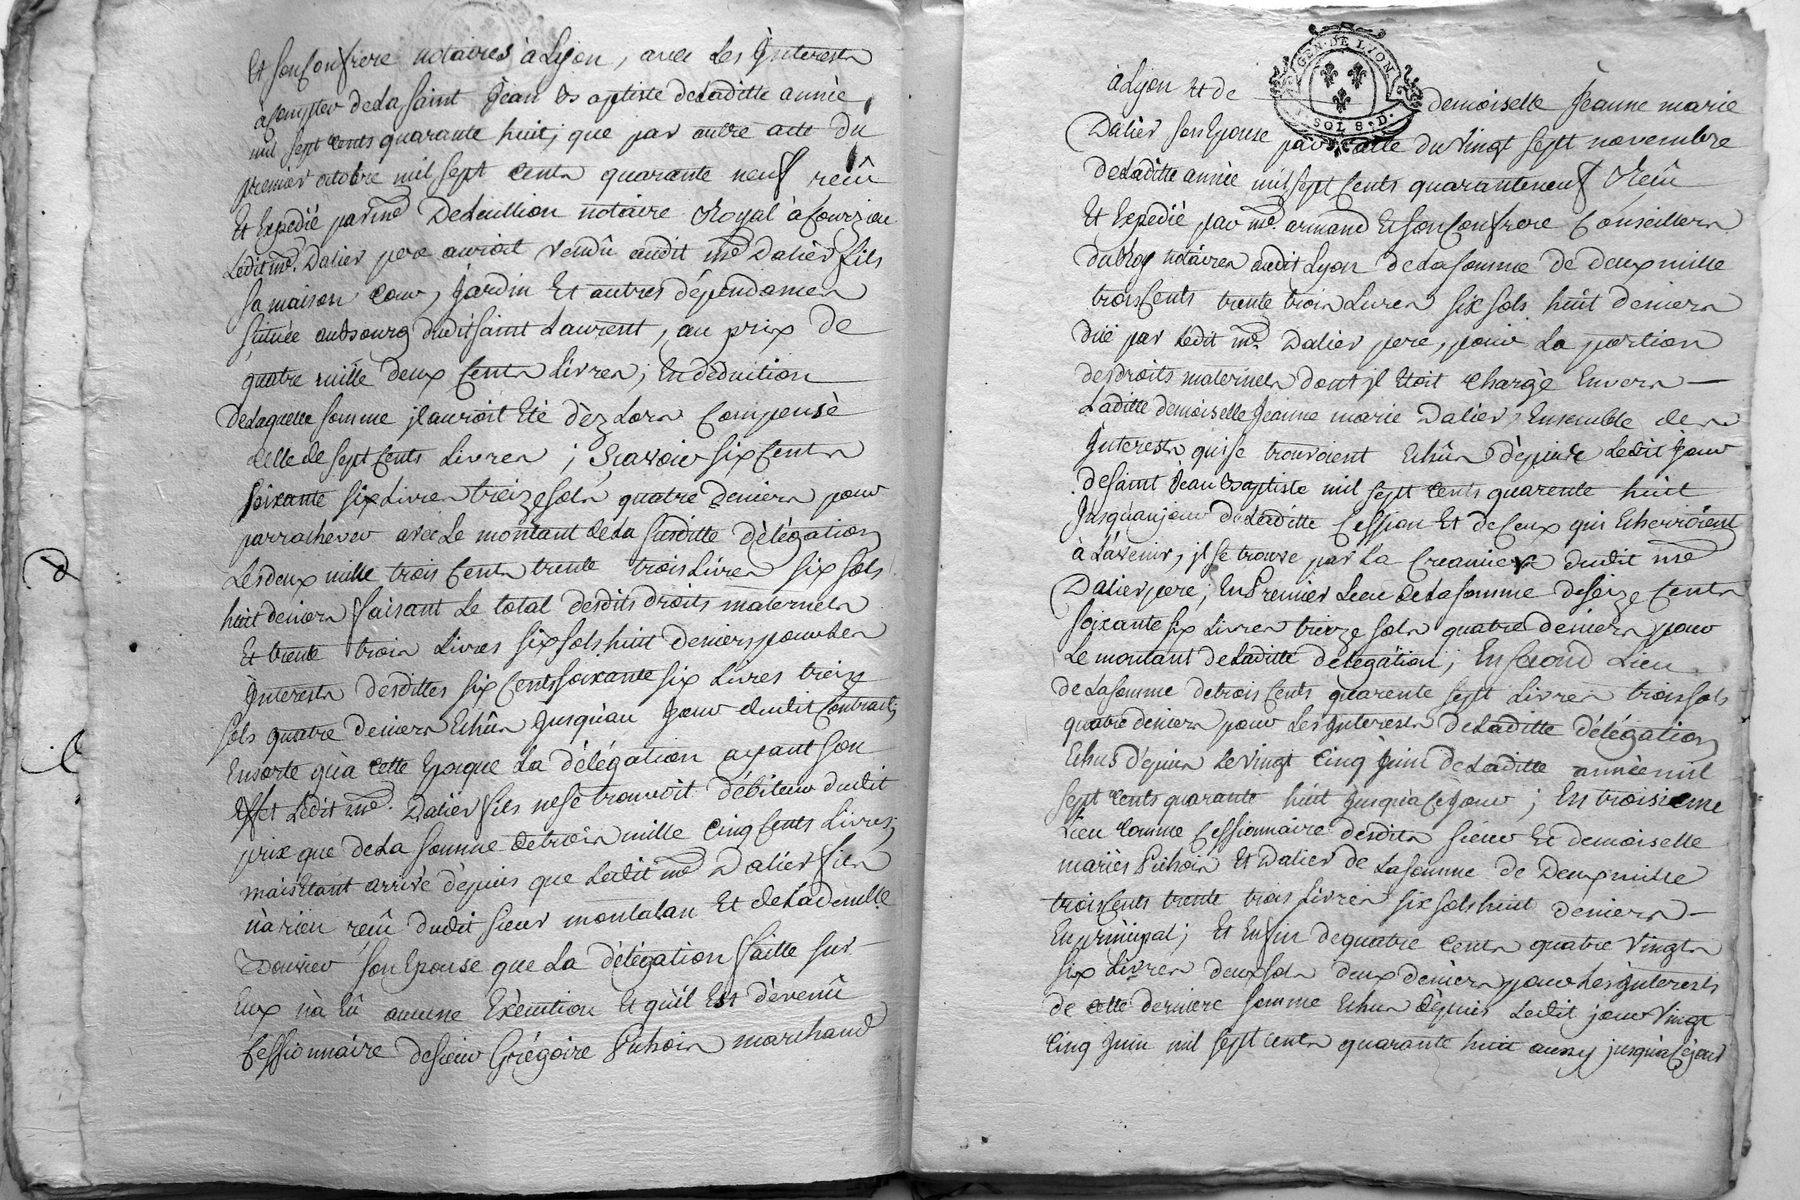 Et son Confrere notaires à Lyon, avec Les Jnterests
à Compter de La Saint Jean Baptiste de Laditte année
mil sept Cents quarante huit; que par autre acte Du
premier octobre mil sept Cents quarante neuf reçû
Et Expedié par me Delaillion notaire Royal à Courzieu
Ledit me. Dalier pere auroit vendû audit me Dalier fils
Sa maison Cour, Jardin Et autres dépendances
Scituée au Bourg dudit Saint Laurent, au prix de
quatre mille deux Cents Livres; En déduition
De Laquelle Somme jl auroit Eté dèz Lors Compensé
celle de Sept Cents Livres; Sçavoir Six Cents
soixante Six Livres treize Sols quatre Deniers pour
parrachever avec Le montant de La Susditte délégation
Les deux mille trois Cents trente trois Livres Six Sols
huit deniers faisant Le total desdits droits maternels
Et trente trois Livres Six Sols huit Deniers pour Les
Jnterests desdittes Six Cents Soixante Six Livres treize
Sols quatre deniers Echûs Jusqu'au Jour dudit Contract;
Ensorte qu'à Cette Epoque La délégation ayant Son
effet Ledit me. Dalier fils ne se trouvoit débiteur dudit
prix que de La Somme de trois mille Cinq Cents Livres;
mais Etant arrivé dépuis que Ledit me Dalier fils
n'a rien reçû dudit Sieur montalan Et de La demlle
Son Epouse que La délégation faitte Sur
Eux n'a Eû aucune Exécution Et qu'il Est dévenû
Cessionnaire de Sieur Grégoire marchand
GEN. DE LYON
SOLS. D.
à Lyon Et de demoiselle Jeanne marie
Dalier Son Epouse par acte du Vingt Sept novembre
de Laditte année mil Sept Cents quarante neuf Reçû
Et Expedié par me. armand Et Son Confrere Conseillers
du Roy notaires audit Lyon de La Somme de deux mille
trois Cents trente trois Livres Six Sols huit deniers
dûe par Ledit me. Dalier pere, pour La portion
des droits maternels dont jl Etoit Chargé Envers
Laditte demoiselle Jeanne marie Dalier, Ensemble des
Jnterests qui se trouvoient Echûs dépuis Ledit Jour
de Saint Jean Baptiste mil Sept Cents quarente huit
Jusqu'au jour de Laditte Cession Et de Ceux qui Echerroient
à L'avenir, jl Se trouve par La Creancier dudit me
Dalier pere; En Premier Lieu de La Somme de Seize Cents
Soixante Six Livres treize Sols quatre deniers pour
Le montant de Laditte délégation; En Second Lieu
de La Somme de trois Cents quarente Sept Livres trois Sols
quatre deniers pour Les Jnterests de Laditte délégation
Echus dépuis Le Vingt Cinq Juin de Laditte année mil
Sept Cents quarante huit Jusqu'à Ce Jour; En troisieme
Lieu Comme Cessionnaire desdits Sieur Et demoiselle
mariés Et Dalier de La Somme de Deux mille
trois Cents trente trois Livres Six Sols huit deniers
En principal; Et Enfin de quatre Cents quatre Vingts
Six Livres deux Sols deux deniers pour Les Jnterests
de Cette derniere Somme Echus dépuis Ledit jour Vingt
Cinq Juin mil Sept Cents quarante huit aussy jusqu'à Ce jour